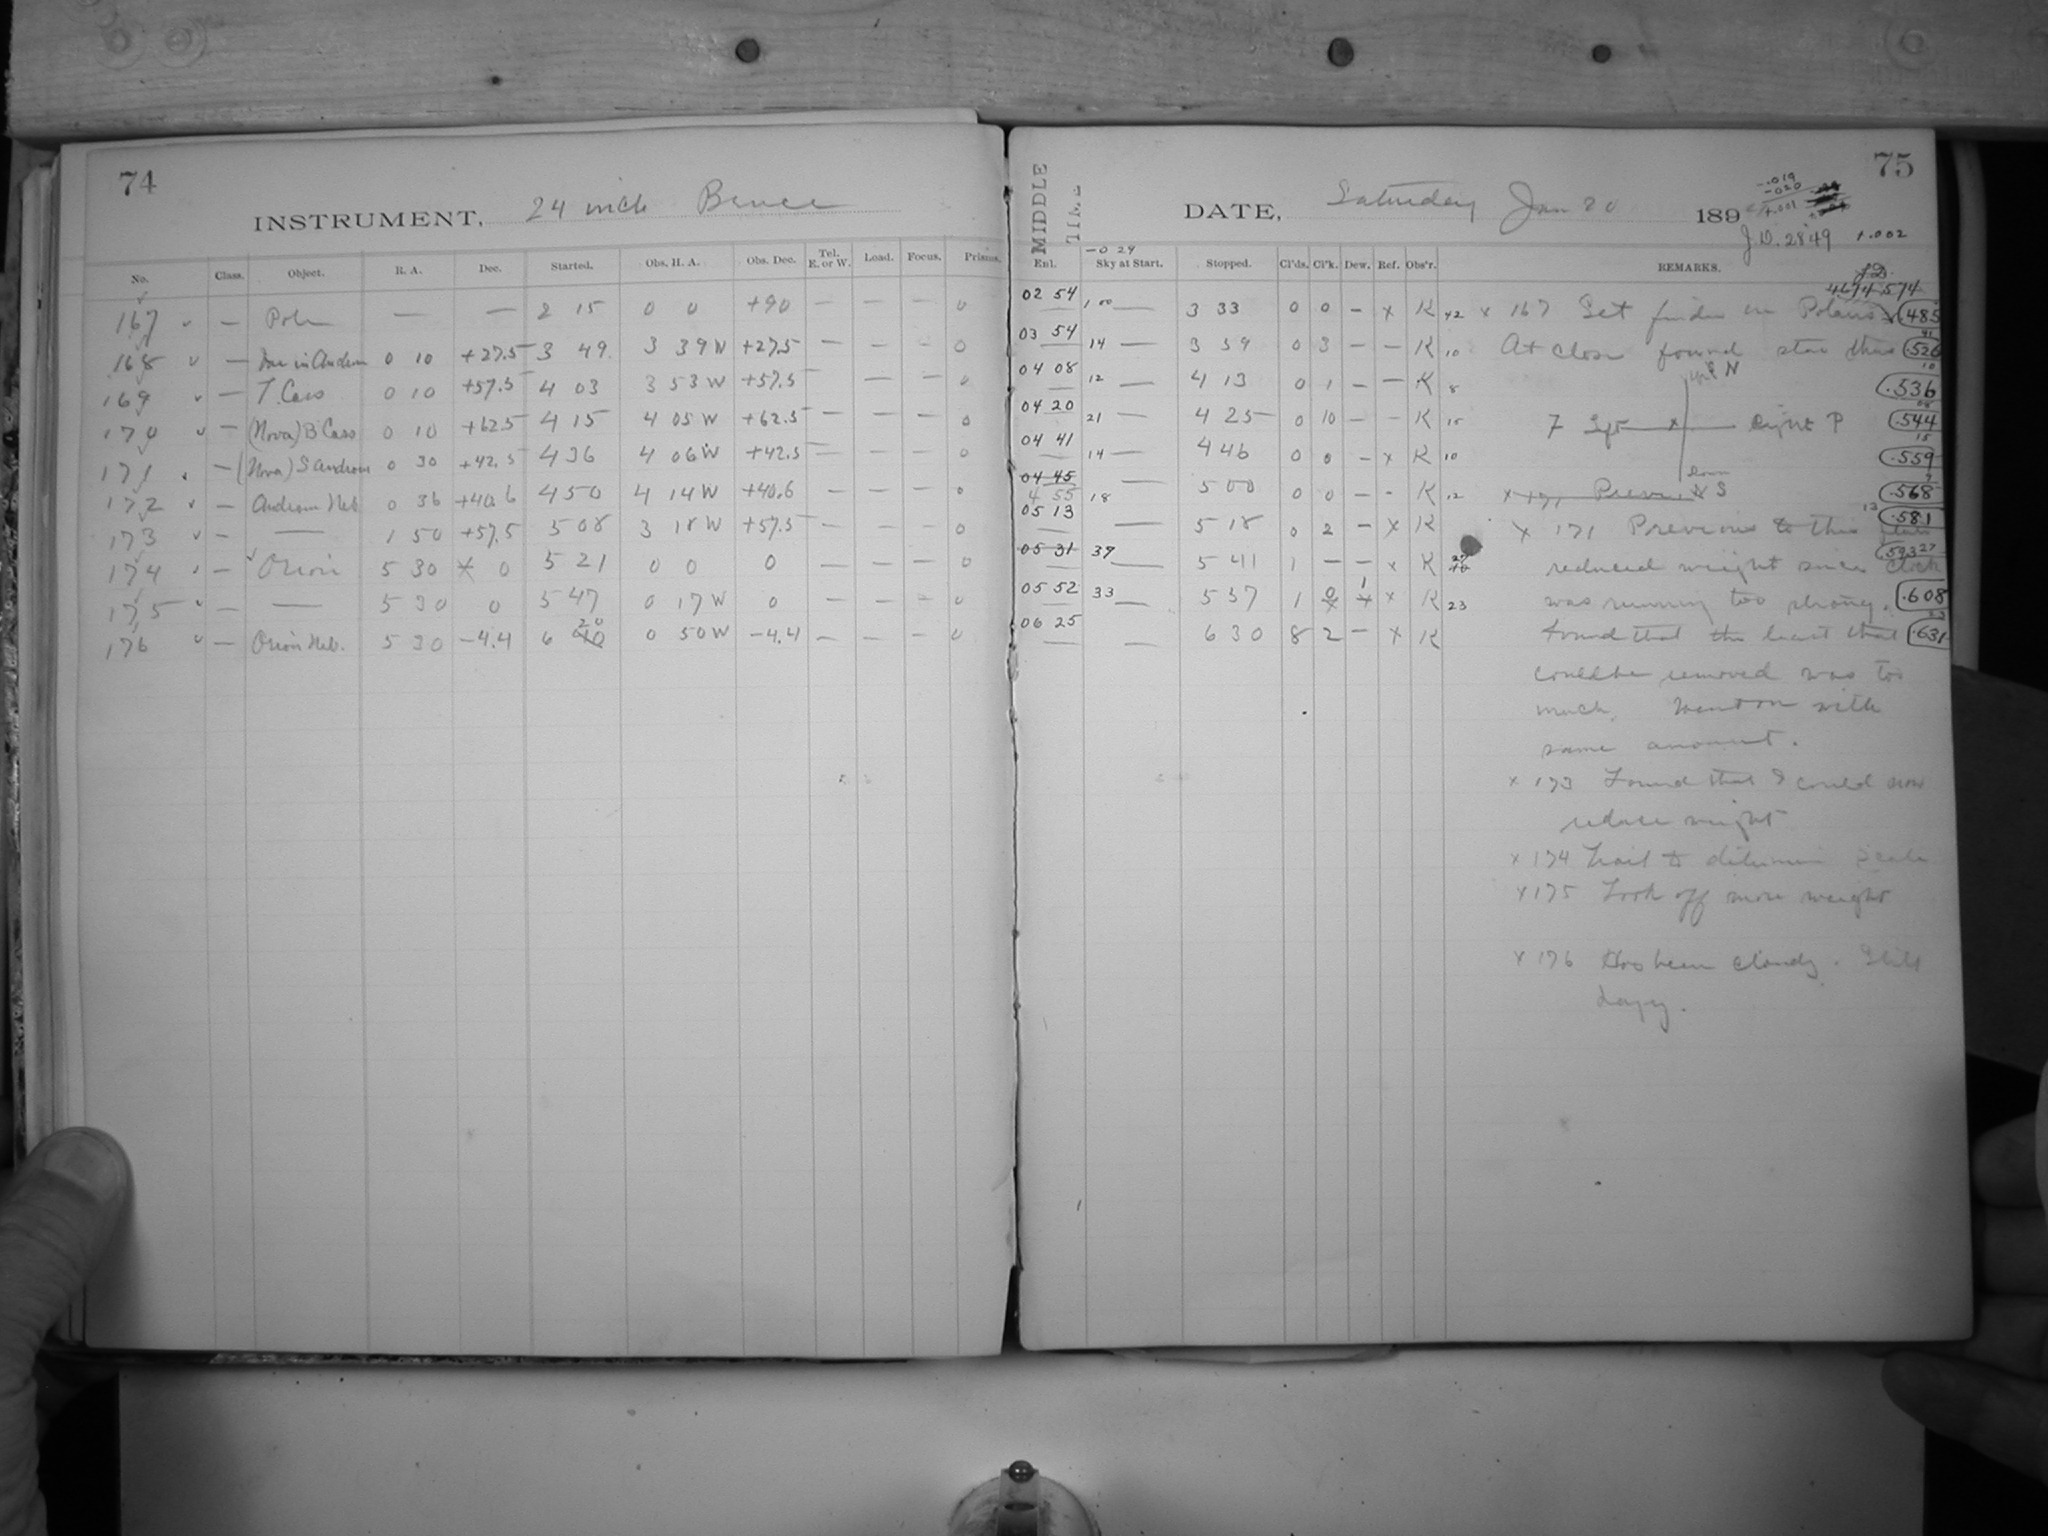 74
INSTRUMENT, 24 inch Bruce
No. Class. Object. R. A. Dec. Started. Obs. H. A. Obs. Dec. Tel. E. or W. Load. Focus. Prisms.
167 — Pole — — 2 15 0 0 +90 — — — 0
168 — 0 10 +27.5 3 49 3 39 W +27.5 — — — 0
169 — T. Cass 0 10 +57.5 4 03 3 53 W +57.5 — — — 0
170 — (Nova) B Cass 0 10 +62.5 4 15 4 05 W +62.5 — — — 0
171 — (Nova) S Androm 0 30 +42.5 4 36 4 06 W +42.5 — — — 0
172 — Androm Neb 0 36 +40.6 4 50 4 14 W +40.6 — — — 0
173 — — 1 50 +57.5 5 08 3 18 W +57.5 — — — 0
174 — Orion 5 30 0 5 21 0 0 0 — — — 0
175 — — 5 30 0 5 47 0 17 W 0 — — — 0
176 — Orion Neb. 5 30 −4.4 6 20 0 50 W −4.4 — — — 0
75
MIDDLE TIME
DATE, Saturday Jan 20 189
-.019
-.020
+.001
J.D. 2849 +.002
-0 29
Enl. Sky at Start. Stopped. Cl'ds. Cl'k. Dew. Ref. Obs'r. REMARKS.
J.D.
4674.574
02 54 1 00 — 3 33 0 0 — x K 42 x 167 Set finder on Polaris .485
03 54 14 — 3 59 0 3 — — K 10 At close found star thus .526
04 08 12 — 4 13 0 1 — — K 8 N .536
04 20 21 — 4 25 0 10 — — K 15 F Left x Right P .544
04 41 14 — 4 46 0 0 — x K 10 .559
04 45 — 5 00 0 0 — - K 12 down S .568
4 55 18
05 13 — 5 18 0 2 — x K x 171 Previous to this plate 13 .581
05 31 39 — 5 41 1 — — x K reduced weight since clock
05 52 33 — 5 57 1 0 1 x K 23 was running too strong. .608
06 25 — — 6 30 8 2 — x K Found that the least that .631
could be removed was too
much. Went on with
same amount.
x 173 Found that I could now
reduce weight
x 174 Trail to determine scale
x 175 Took off more weight
x 176 Has been cloudy. Still
hazy.